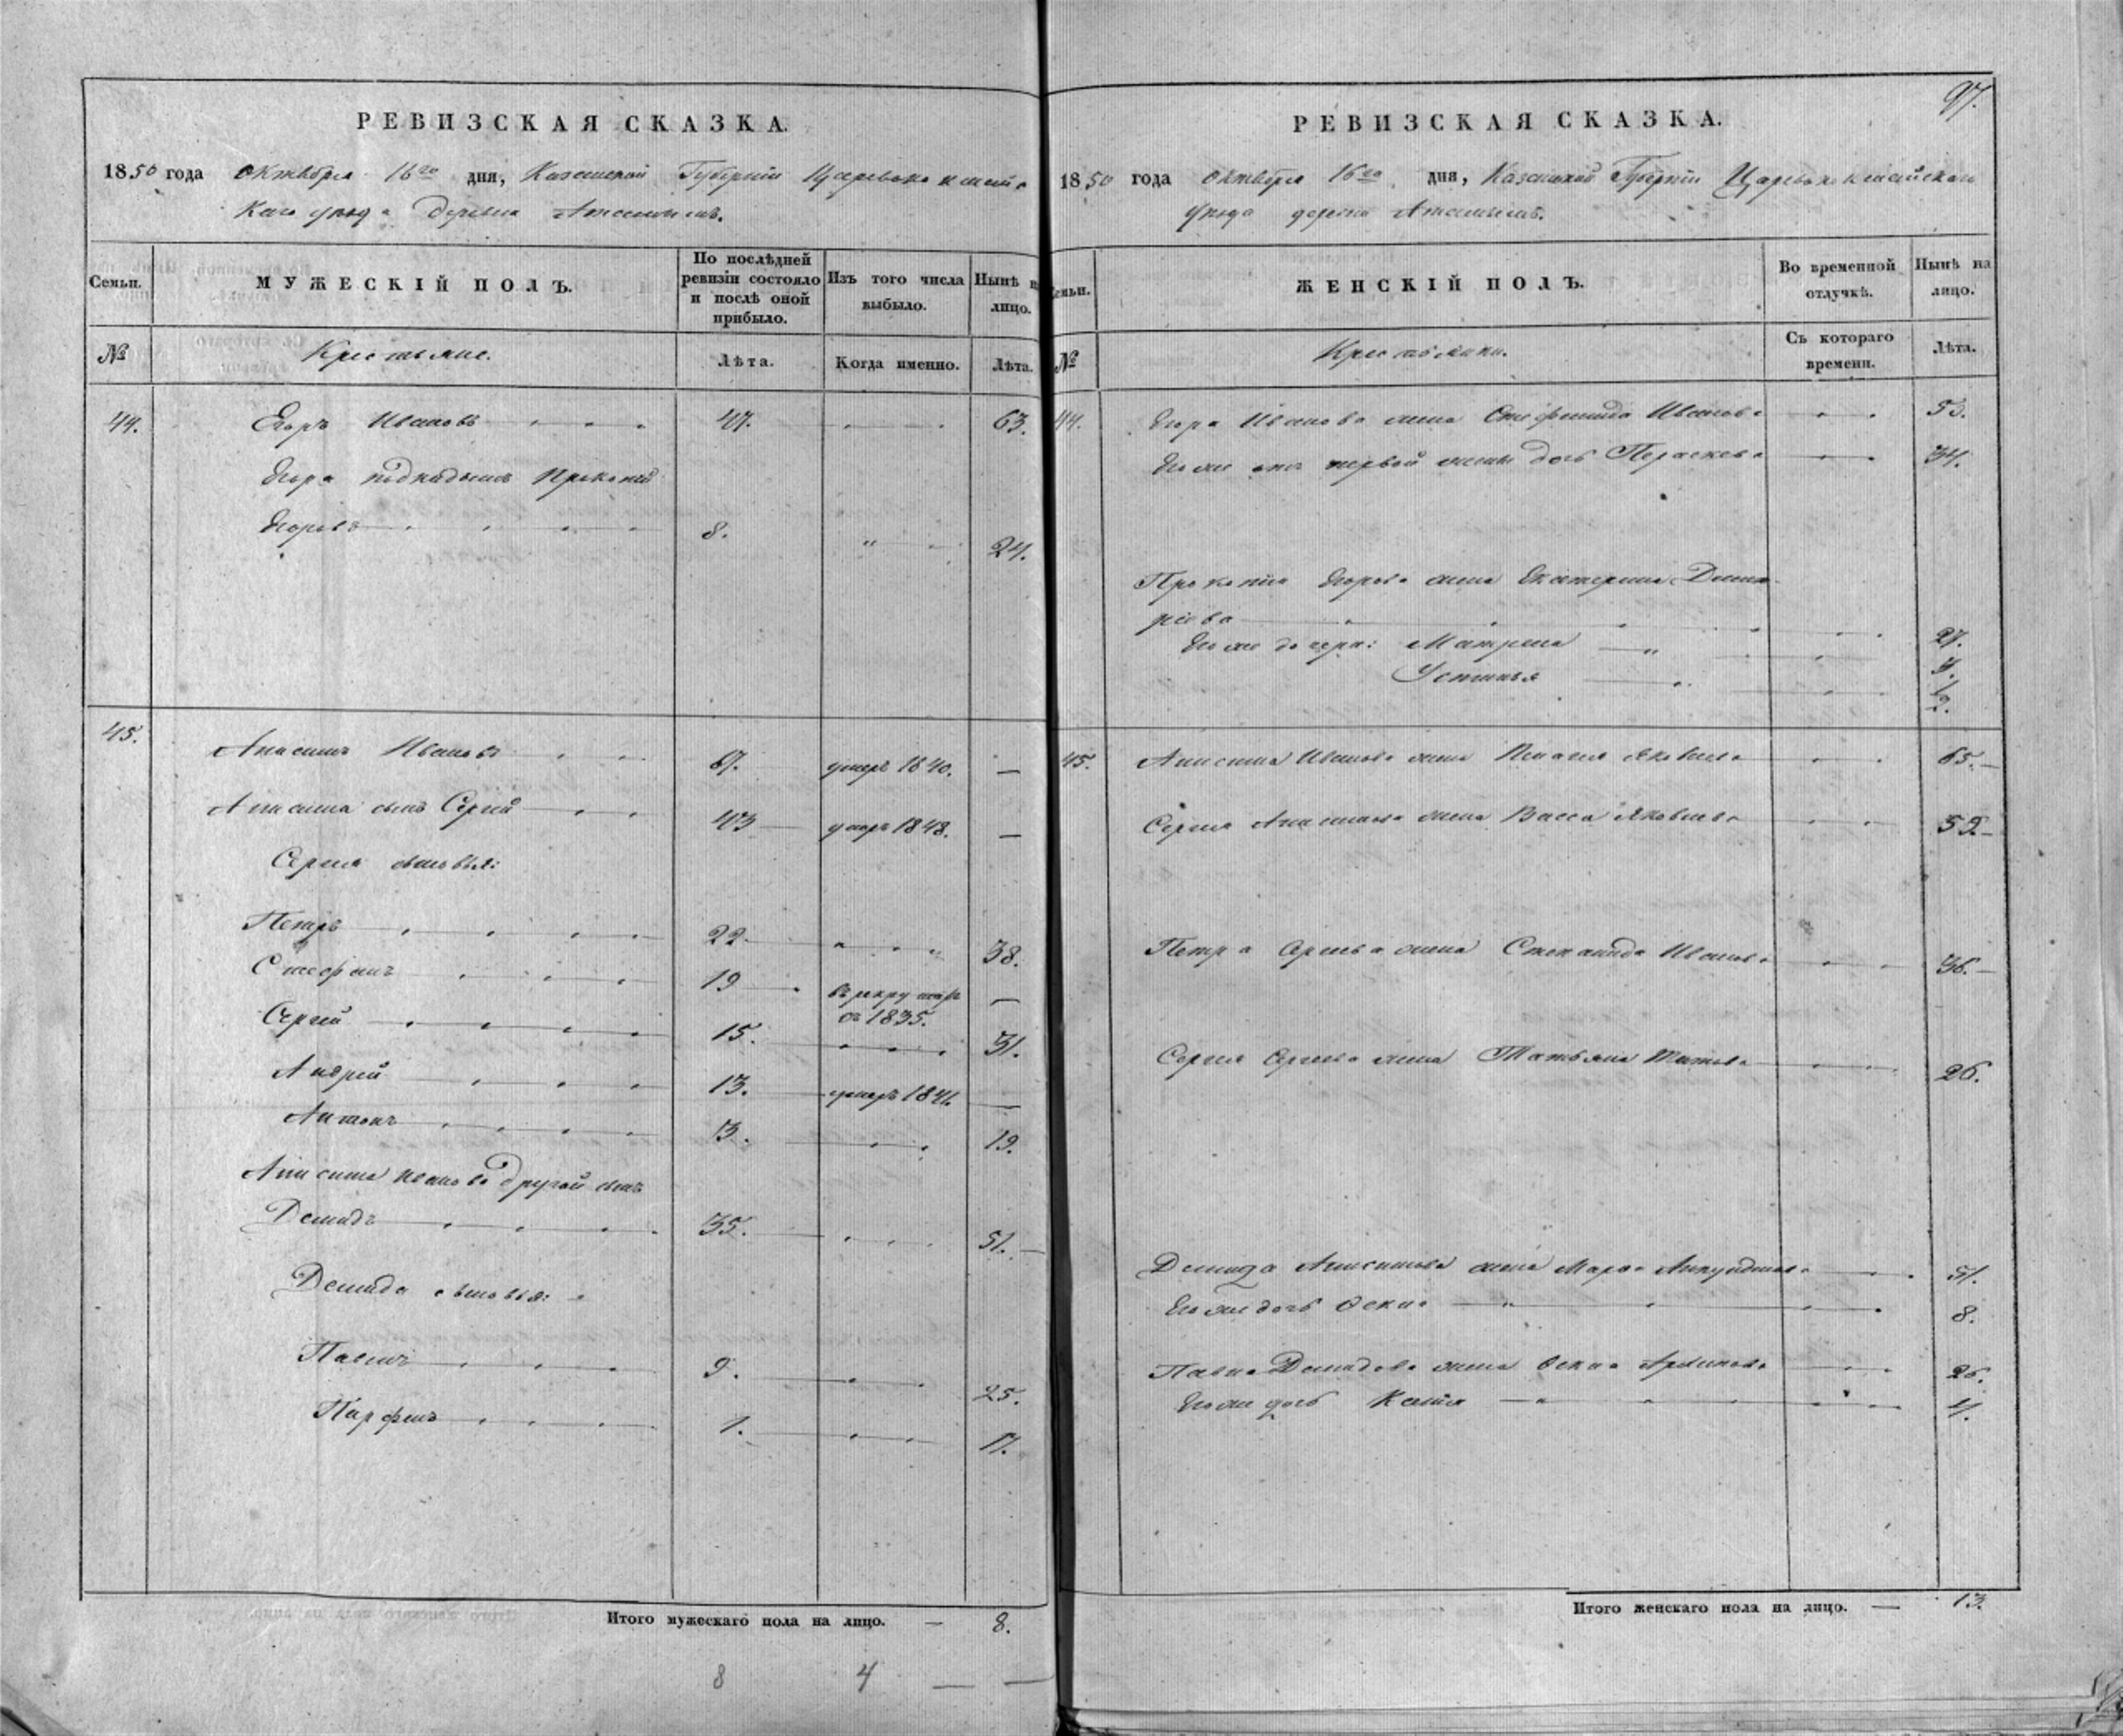 РЕВИЗСКАЯ СКАЗКА.
1850 года октября 16го дня, Казанской Губернии Царевококшайс
каго уезда Деревни
Семьи.
МУЖЕСКІЙ ПОЛЪ.
По послѣдней ревизіи состояло и послѣ оной прибыло.
Изъ того числа выбыло.
Нынѣ на лицо.
№
Крестьяне.
Лѣта.
Когда именно.
Лѣта.
44.
Егоръ Ивановъ 47. 63.
Егора подкидышъ Прокопій
Егоровъ 8. " 24.
45.
Анисимъ Ивановъ 67. умеръ 1840. —
Анисима сынъ Сергій 43 умеръ 1848. —
Сергія сыновья:
Петръ 22. " 38.
Стефанъ 19 въ рекрутах —
съ 1835.
Сергій 15. 31.
Андрей 13. умеръ 1841. —
Антонъ 3. 19.
Анисима Иванова другой сынъ
Демидъ 35. 51. —
Демида сыновья:
Павелъ 9. 25.
Парфенъ 1. 17.
Итого мужескаго пола на лицо. — 8.
8 4 — —
97.
РЕВИЗСКАЯ СКАЗКА.
1850 года октября 16го дня, Казанской Губерніи Царевококшайскаго
уезда деревни
Семьи.
ЖЕНСКІЙ ПОЛЪ.
Во временной отлучкѣ.
Нынѣ на лицо.
№
Крестьянки.
Съ котораго времени.
Лѣта.
44. Егора Иванова жена Ивано­ва 53.
Его же отъ первой жены дочь Параскева 34.
Прокопія Егорова жена Екатерина Димит
ріева 27.
Его же дочери: Матрена " 4.
Устинья 1/2.
45. Анисима Иванова жена Пелагея Яковлева 65. —
Сергія Анисимова жена Васса Яковлева 59. —
Петра Сергіева жена Степанида Иванова 36. —
Сергія Сергіева жена Татьяна Титова 26.
Демида Анисимова жена Марѳа 51.
Его же дочь Ѳекла " 8.
Павла Демидова жена Ѳекла 26.
Его же дочь 4.
Итого женскаго пола на лицо. — 13.